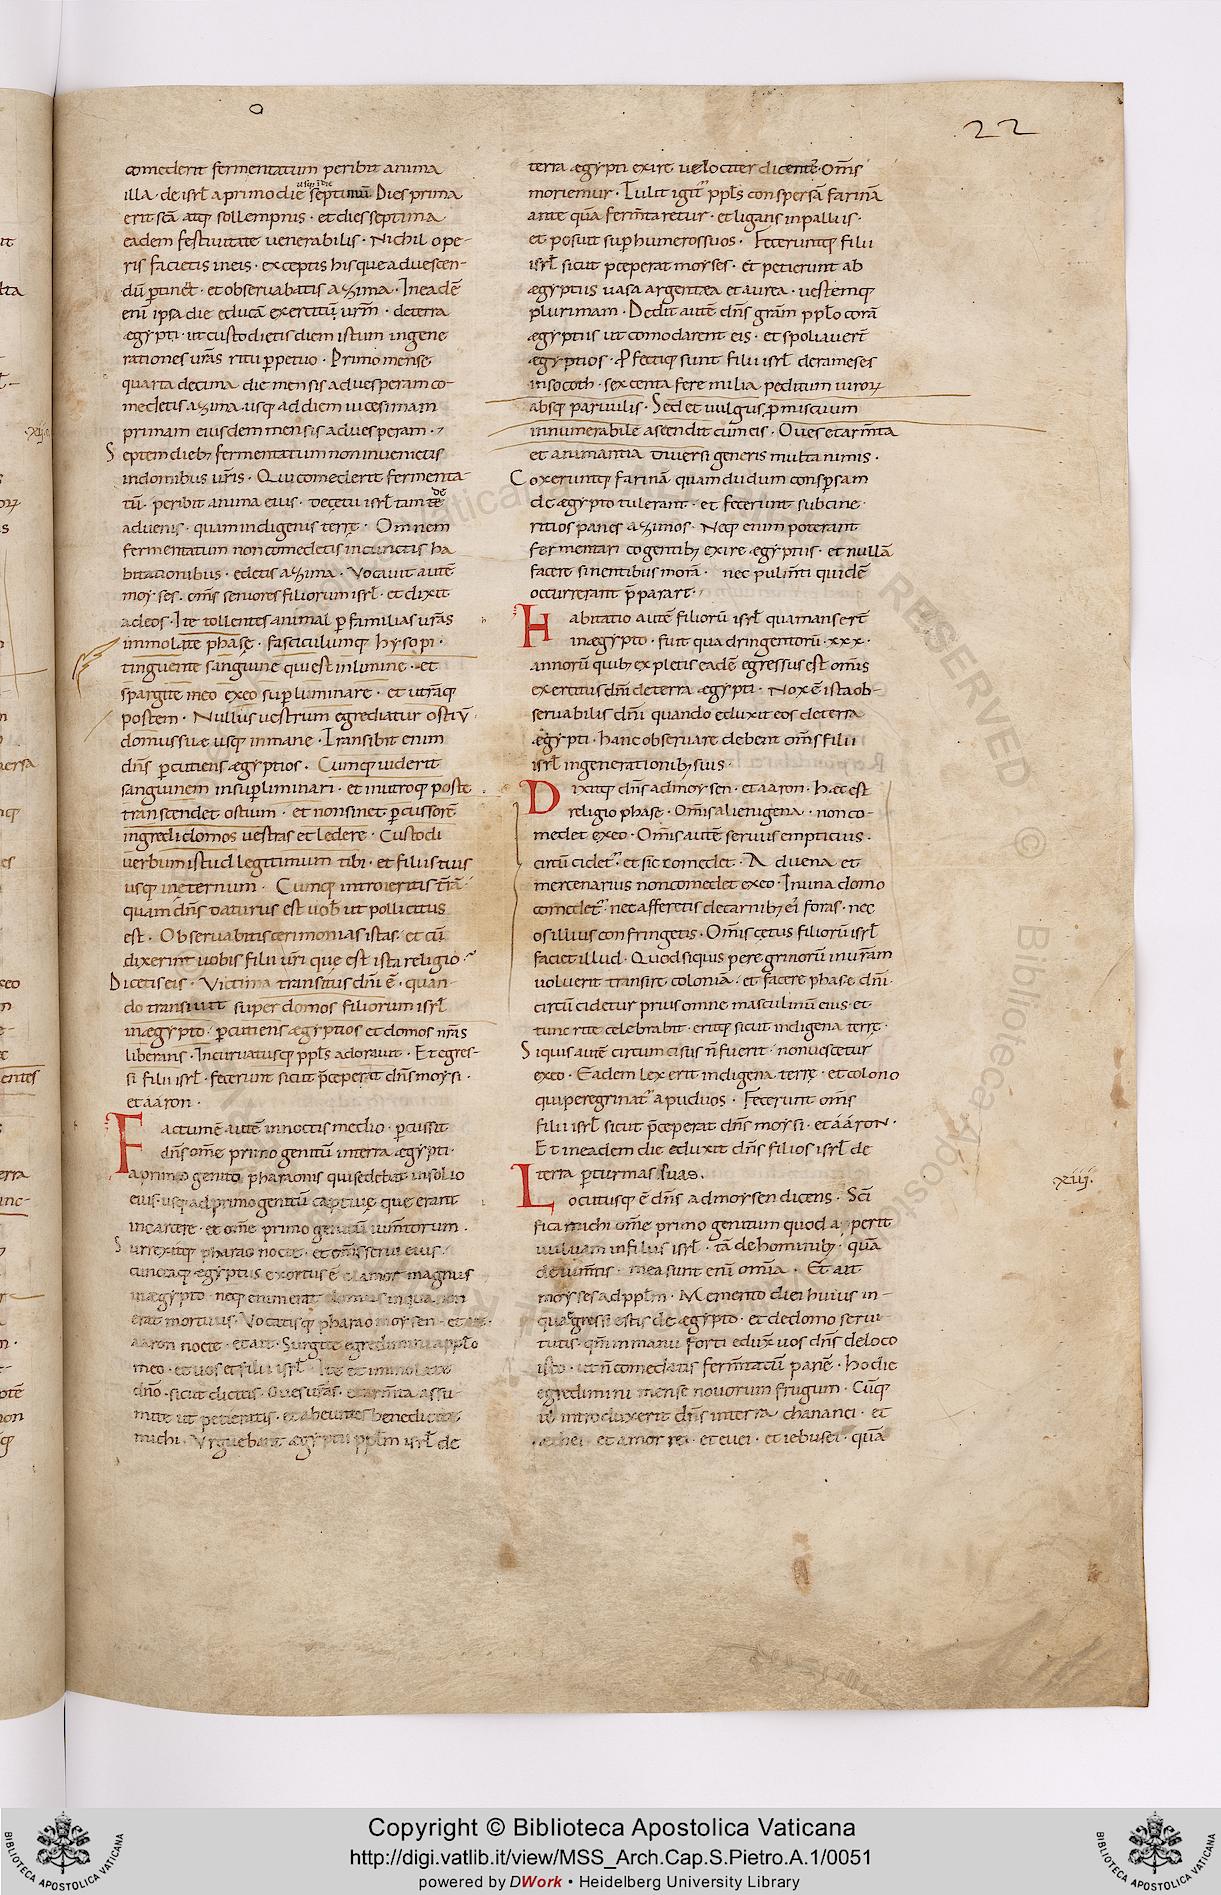 22
comederit fermentatum peribit anima
illa · de isrł a primo die usq; ī diē septimū Dies prima
erit scā atq; sollempnis · et dies septima
eadem festivitate venerabilis · Nichil ope-
ris facietis in eis · exceptis his que ad vescen-
dū ꝑtinet · et observabatis azima · In eadē
enī ipsa die educā exercitū vrm̄ · de terra
ægypti · ut custodietis diem istum in gene
rationes vrās ritu ꝑpetuo · Primo mense
quarta decima die mensis ad vesperam co-
medetis azima usq; ad diem vicesimam
primam eiusdem mensis ad vesperam ·
Septem dieb; fermentatum non invenietis
in domibus vr̄is · Qui comederit fermenta
tū · peribit anima eius · de cetu isrł tam de
advenis · quam indigenis terrę · Omnem
fermentatum non comedetis in cunctis ha
bitationibus · edetis azima · Vocavit autē
moyses · om̄s seniores filiorum isrł · et dixit
ad eos · Ite tollentes animal ꝑ familias vrās
immolate phase · fasciculumq; hysopi ·
tinguente sanguine qui est in limine · et
spargite in eo ex eo suꝑ luminare · et utrāq;
postem · Nullus vestrum egrediatur ostiū
domus suæ usq; in mane · Transibit enim
dn̄s ꝑcutiens ægyptios · Cumq; viderit
sanguinem in suꝑluminari · et in utroq; poste
transcendet ostium · et non sinet ꝑcussorē
ingredi domos vestras et ledere · Custodi
verbum istud legitimum tibi · et filiis tuis
usq; in ęternum · Cumq; introieritis trā̄
quam dn̄s daturus est vob̄ ut pollicitus
est · Observabitis cerimonias istas · et cū
dixerint vobis filii vr̄i que est ista religio
Dicetis eis · Victima transitus dn̄i ē · quan-
do transivit super domos filiorum isrł
in ægypto · ꝑcutiens ægyptios et domos nrās
liberans · Incurvatusq; ppl̄s adoravit · Et egres-
si filii isrł · fecerunt sicut p̄ceperat dn̄s moysi ·
et aaron ·
Factum ē autē in noctis medio · ꝑcussit
dn̄s om̄e primogenitū in terra ægypti ·
a primogenito pharaonis qui sedebat in solio
eius · usq; ad primogenitū captivę que erant
in carcere · et om̄e primogenitū iumtorum ·
Surrexitq; pharao nocte · et om̄s servi eius
cunctaq; ægyptus exortus ē clamor magnus
in ægypto · neq; enim erat domus in qua non
erat mortuus · Vocatisq; pharao moysen · et
aaron nocte · et ait · Surgite egredimini a ppl̄o
meo · et vos et filii isrł · Ite et immolate
dn̄o · sicut dicitis · Oves vrās · et armta assu
mite ut petieratis · et abeuntes benedicite
michi · Urguebant ægyptii ppl̄m isrł de
terra ægypti exire velociter dicentes · Om̄s
moriemur · Tulit igit̄ ppl̄s conspersā farinā
ante quā ferm̄taretur · et ligans in palliis ·
et posuit suꝑ humeros suos · Feceruntq; filii
isrł sicut p̄ceperat moyses · et petierunt ab
ægyptiis vasa argentea et aurea · vestemq;
plurimam · Dedit autē dn̄s grām ppl̄o corā
ægyptiis ut comodarent eis · et spoliaver̄t
ægyptios · Ꝓfectiq; sunt filii isrł de rameses
in socoth · sexcenta fere milia peditum viroꝝ
absq; parvulis · Sed et vulgus ꝓmiscuum
innumerabile ascendit cum eis · Oves et arm̄ta
et animantia diversi generis multa nimis ·
Coxeruntq; farinā quam dudum consꝑsam
de ægypto tulerant · et fecerunt subcine
ritios panes azimos · Neq; enim poterant
fermentari cogentib; exire ægyptiis · et nullā
facere sinentibus morā · nec pulm̄ti quidē
occurrerant p̄parare ·
Habitatio autē filiorū isrł qua manser̄t
in ægypto · fuit quadringentorū · xxx ·
annorū quib; expletis eadē egressus est omīs
exercitus dn̄i de terra ægypti · Nox ē ista ob-
servabilis dn̄i quando eduxit eos de terra
ægypti · hanc observare debent om̄s filii
isrł in generationib; suis ·
Dixitq; dn̄s ad moysen · et aaron · hæc est
religio phase · Om̄s alienigena · non co-
medet ex eo · Om̄s autē servus empticius ·
circū cidet̄ · et sic comedet · Advena et
mercenarius non comedet ex eo · In una domo
comedet̄ · nec afferetis de carnib; ei foras · nec
os illius confringetis · Om̄s cętus filiorū isrł
faciet illud · Quod siquis peregrinorū in vrām
voluerit transire coloniā · et facere phase dn̄i ·
circū cidetur prius omne masculinū eius · et
tunc rite celebrabit · eritq; sicut indigena terrę ·
Siquis autē circumcisus n̄ fuerit · non vescetur
ex eo · Eadem lex erit indigena terrę · et colono
qui peregrinat̄ apud vos · Fecerunt om̄s
filii isrł sicut p̄ceperat dn̄s moysi · et aaron ·
Et in eadem die eduxit dn̄s filios isrł de
terra ꝑ turmas suas.
Locutusq; ē dn̄s ad moysen dicens · Scī
fica michi om̄e primogenitum quod aperit
vulvam in filiis isrł · tā de hominib; quā
de ium̄tis · mea sunt enī omīa · Et ait
moyses ad ppl̄m · Memento diei huius in
qua egressi estis de ægypto · et de domo servi
tutis · qm̄ in manu forti eduxit vos dn̄s de loco
isto · ut n̄ comedatis ferm̄tatū panē · hodie
egredimini mense novorum frugum · Cūq;
te introduxerit dn̄s in terrā chananei · et
æthei · et amorrei · et evei · et iebusei · quā
xiij.
Copyright © Biblioteca Apostolica Vaticana
http://digi.vatlib.it/view/MSS_Arch.Cap.S.Pietro.A.1/0051
powered by DWork • Heidelberg University Library
BIBLIOTECA APOSTOLICA VATICANA
BIBLIOTECA APOSTOLICA VATICANA